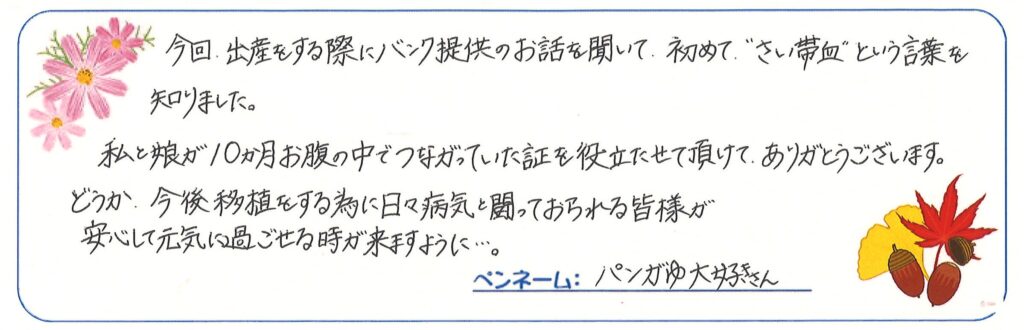 今回、出産をする際にバンク提供のお話を聞いて、初めて、"さい帯血"という言葉を
知りました。
私と娘が10か月お腹の中でつながっていた証を役立たせて頂けて、ありがとうございます。
どうか、今後移植をする為に日々病気と闘っておられる皆様が
安心して元気に過ごせる時が来ますように…。
ペンネーム: パンがゆ大好きさん